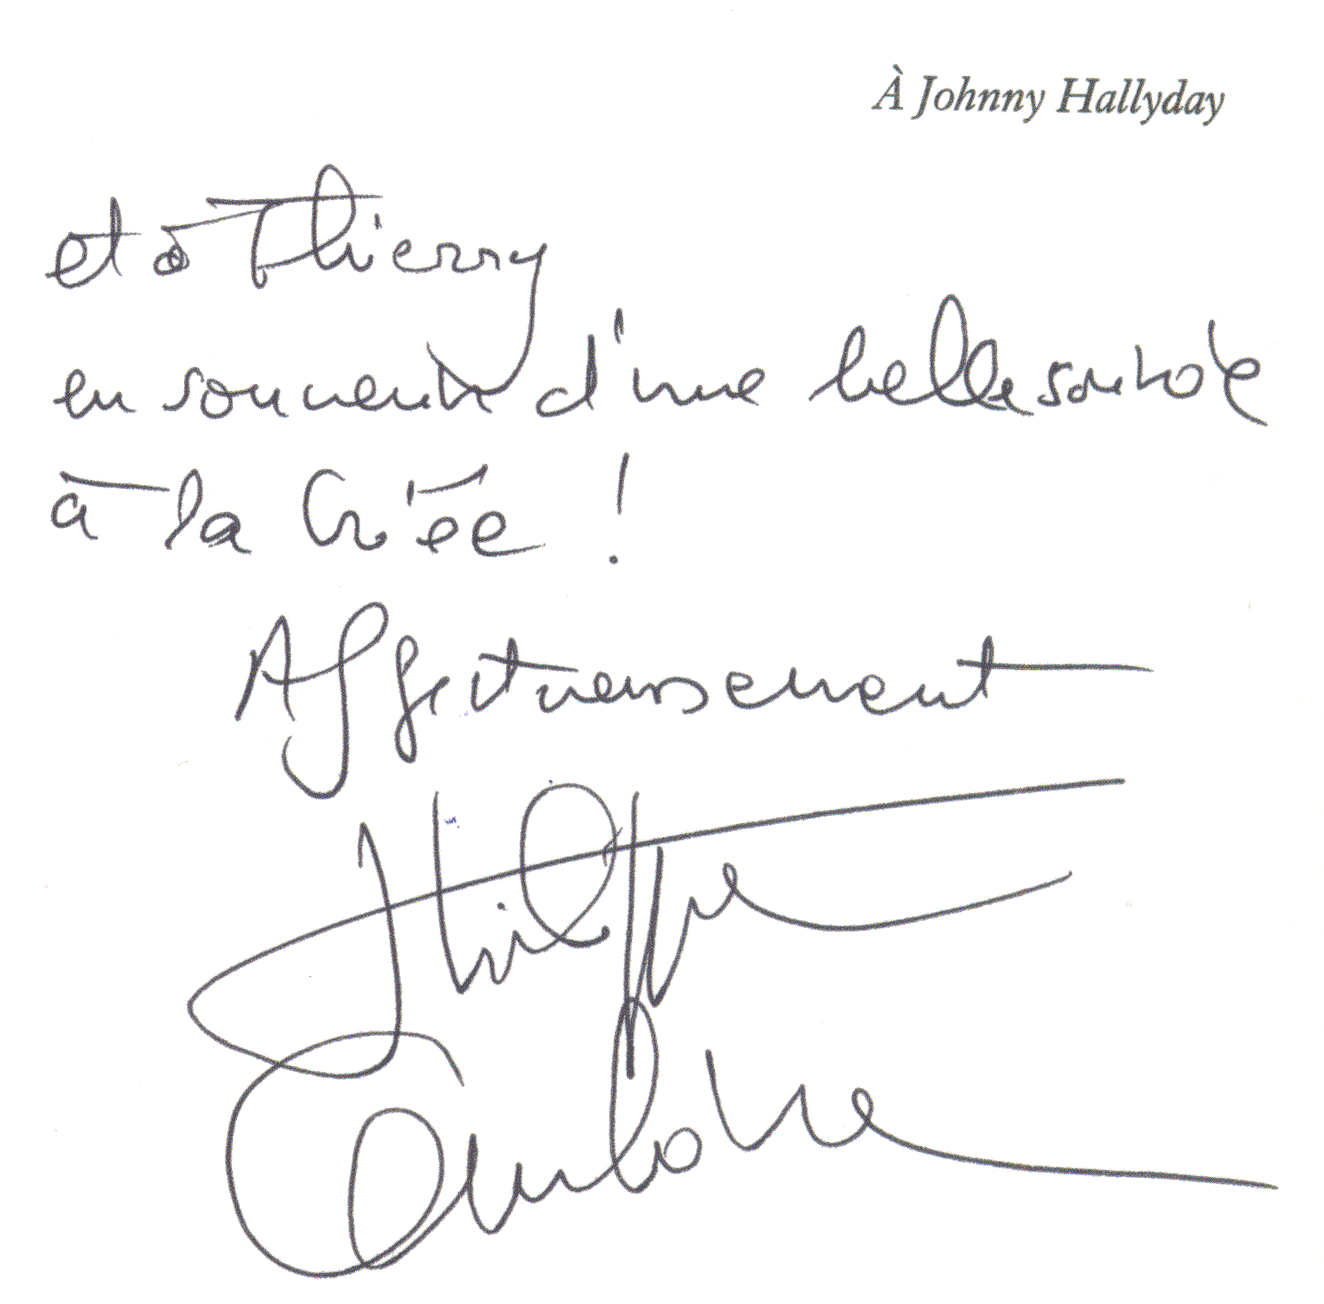 À Johnny Hallyday
et à Thierry
en souvenir d'une belle soirée
à la Criée !
Affectueusement
Philippe
Caubère